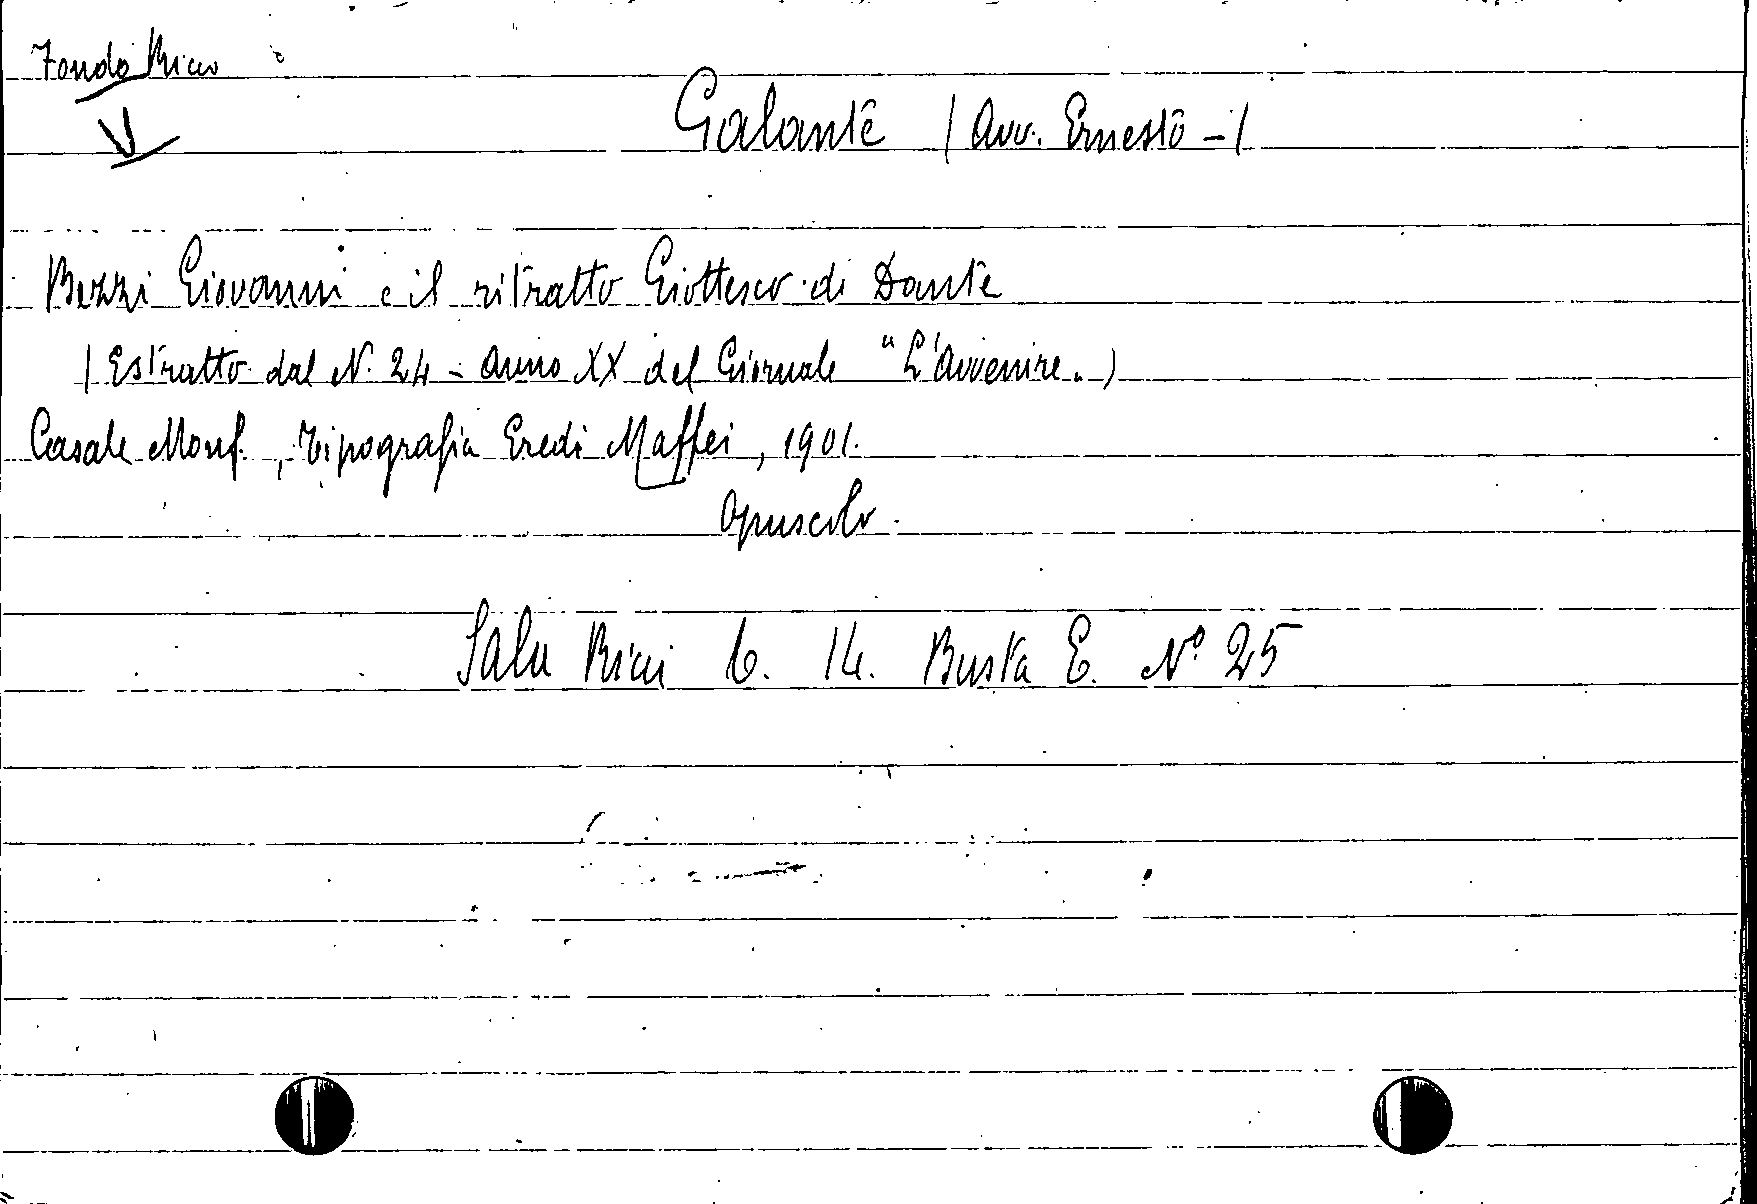 Fondo Ricci
Galante (Avv. Ernesto -)
Bezzi Giovanni e il ritratto Giottesco di Dante
(Estratto dal N. 24 - Anno XX del Giornale "L'Avvenire")
Casale Monf., Tipografia Eredi Maffei, 1901.
Opuscolo.
Sala Ricci 6. 14. Busta E. Nº 25